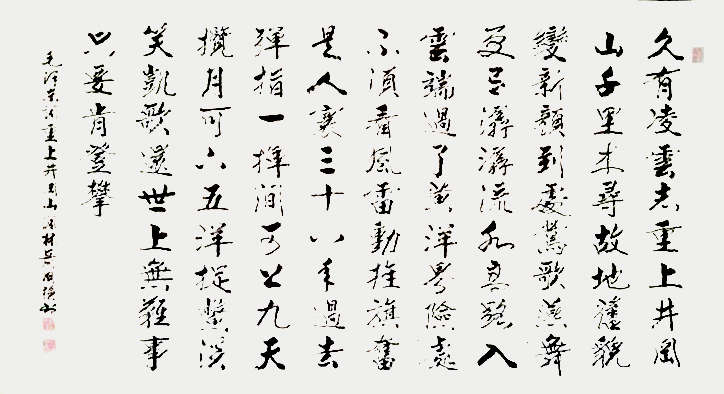 久有凌雲志重上井岡
山千里来尋故地舊貌
變新顏到處鶯歌燕舞
更有潺潺流水高路入
雲端過了黄洋界險處
不須看風雷動旌旗奮
是人寰三十八年過去
彈指一揮間可上九天
攬月可下五洋捉鱉談
笑凱歌還世上無難事
只要肯登攀
毛泽東词重上井岡山